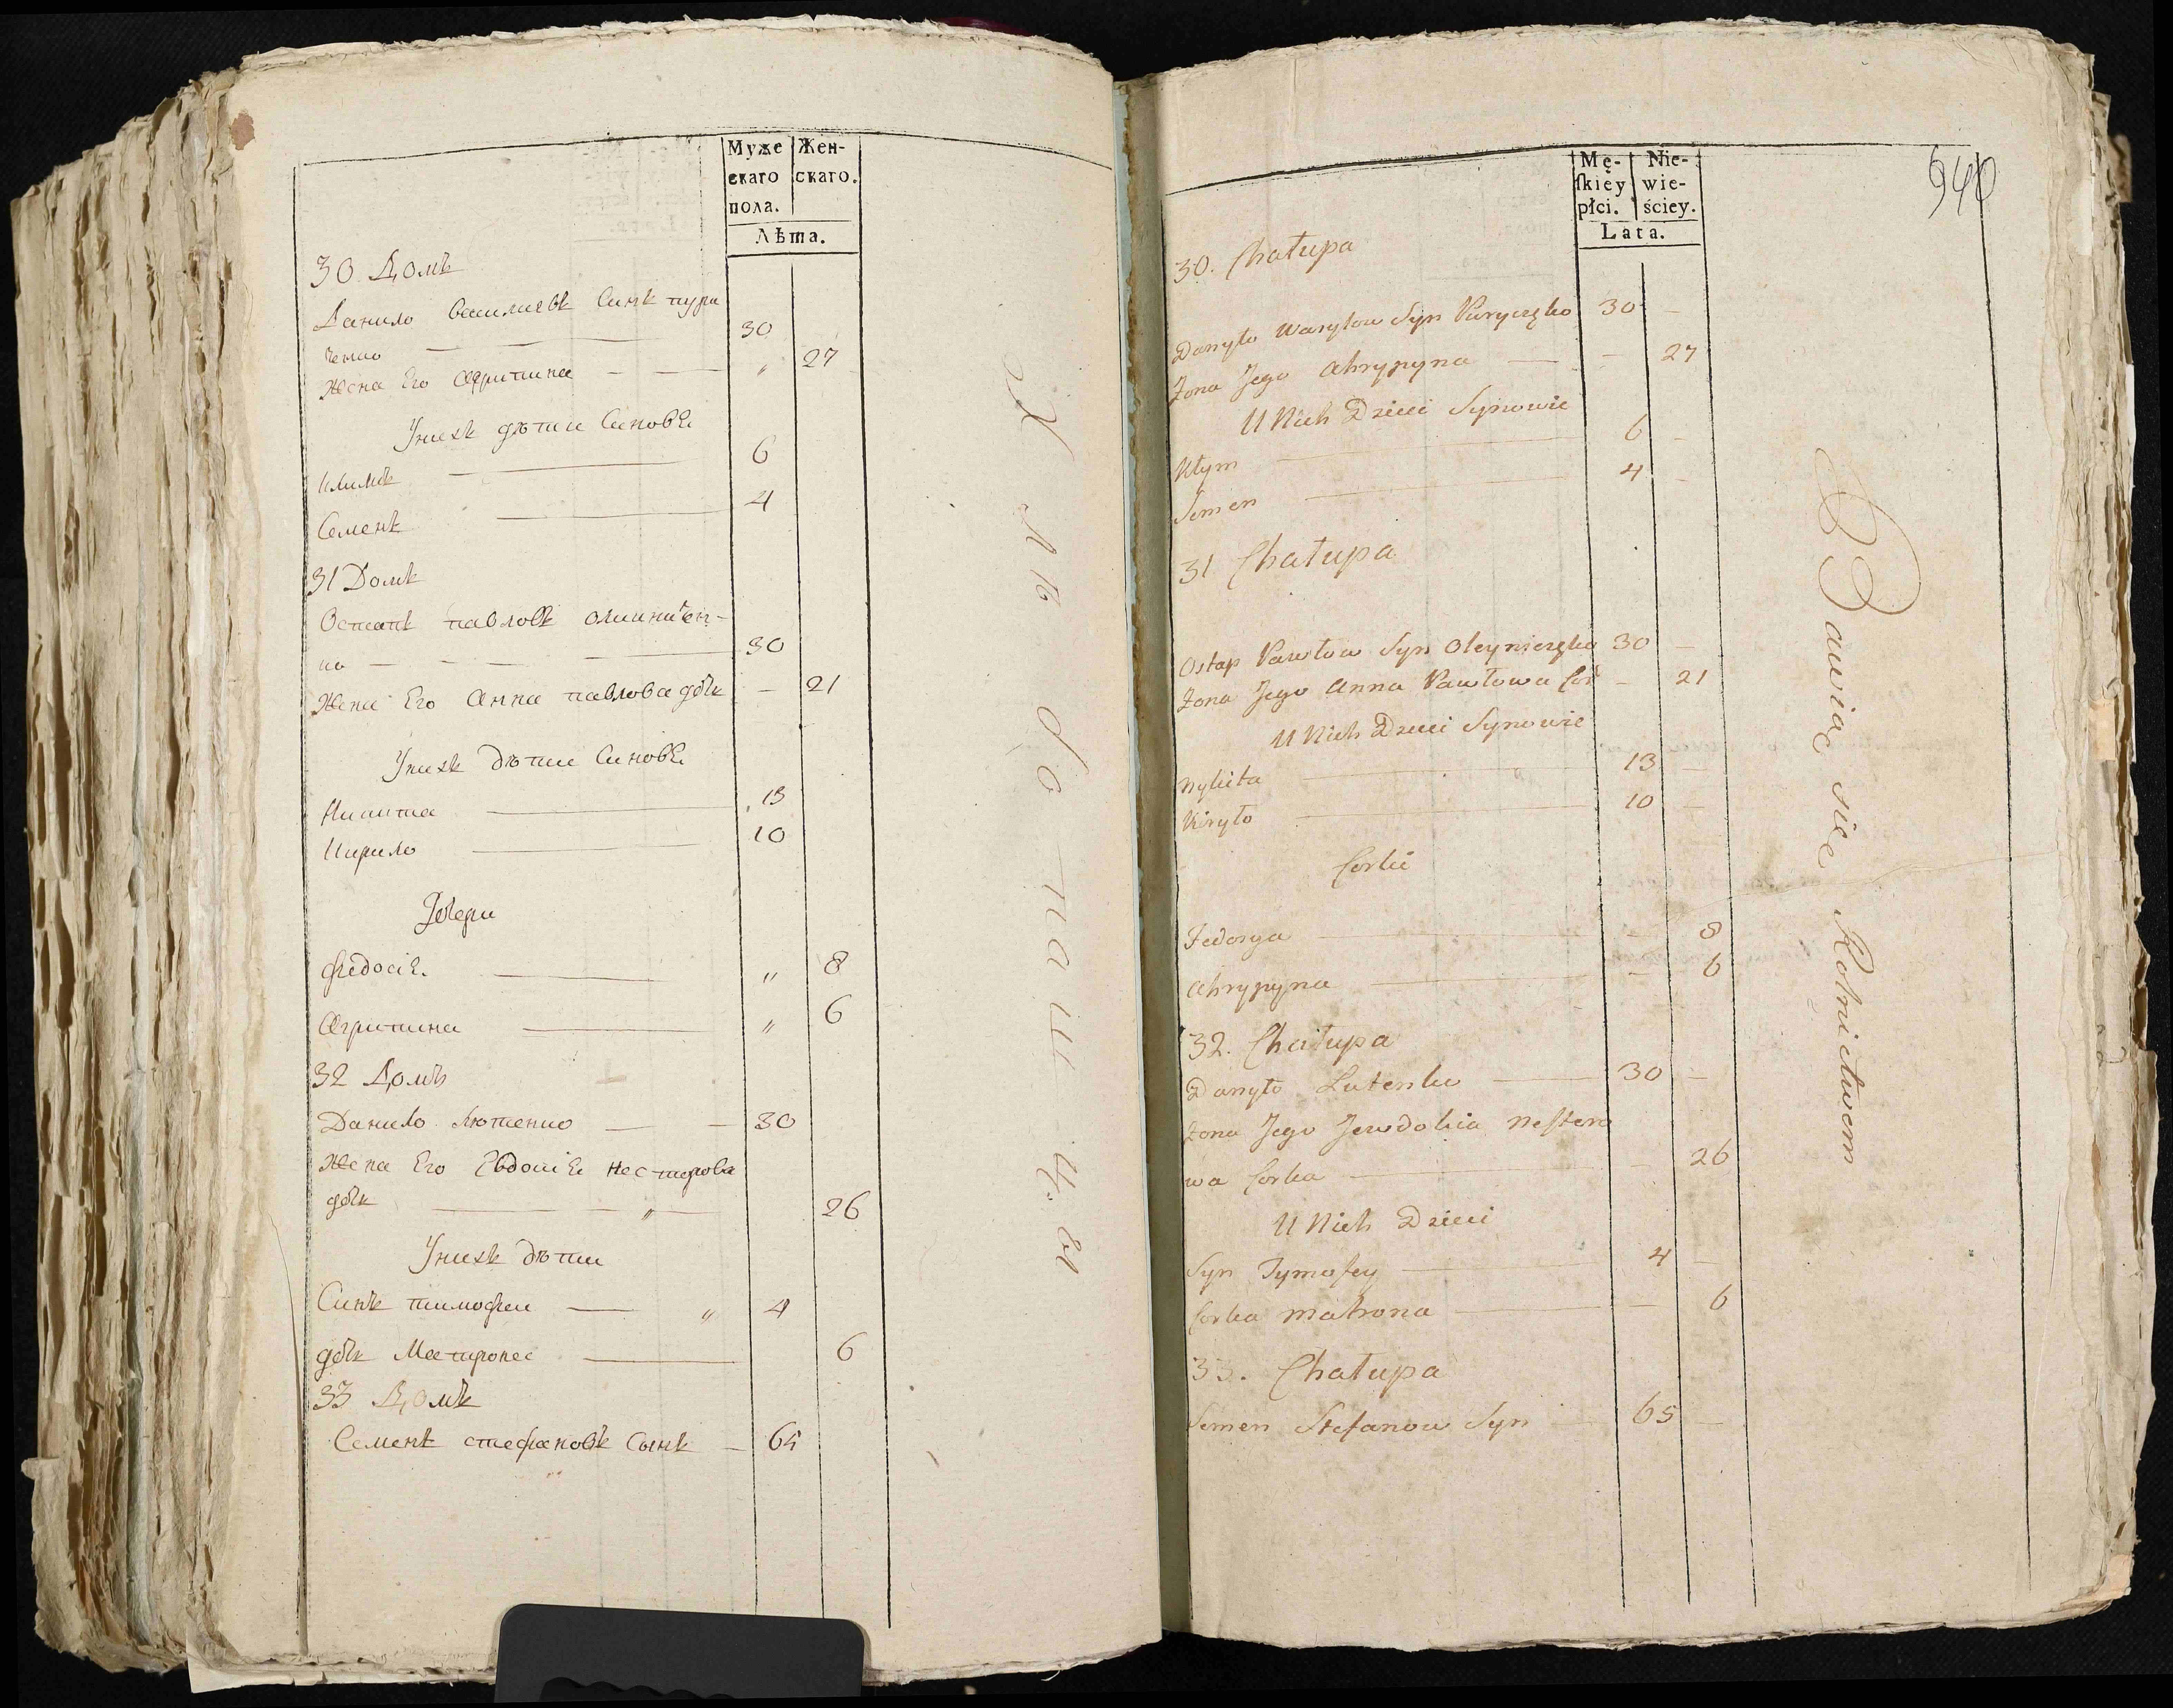 Муже
скаго
пола.
Жен-
скаго.
Лѣта.
30 Домъ
Данило василiевъ Синъ пури
ченко 30
Жена Его Агрипина " 27
Унихъ дѣти Синовѣ
Климъ 6
Семенъ 4
31 Домъ
Остапъ павловъ олиничен-
ко 30
Жена Его Анна павлова дочь 21
Унихъ дѣти Синовѣ
Никита 13
Кирило 10
Дочери
федосiя " 8
Агрипина " 6
32 Домъ
Данило Лютенко 30
Жена Его Евдокiя нестерова
дочь " 26
Унихъ дѣти
Синъ тимофеи " 4
дочь Матрона 6
33 Домъ
Семенъ стефановъ Сынъ 65
Хлѣбопашцы
940
Mę-
ſkiéy
płci.
Nie-
wie-
ściey.
Lata.
30. Chałupa
Danyło Wasylow Syn Puryczęko 30
Żona Jego Ahrypyna 27
U Nich Dzieci Synowie
Kłym 6
Semen 4
31 Chałupa
Ostap Pawłow Syn Oleyniczęko 30
Żona Jego Anna Pawłowa Cor 21
U Nich Dzieci Synowie
Nykita 13
Kiryło 10
Corki
Fedosya 8
Ahrypyna 6
32. Chałupa
Danyło Lutenko 30
Żona Jego Jewdokia Nestero
wa Corka 26
U Nich Dzieci
Syn Tymofey 4
Corka Matrona 6
33. Chałupa
Semen Stefanow Syn 65
Bawią się Rolnictwem